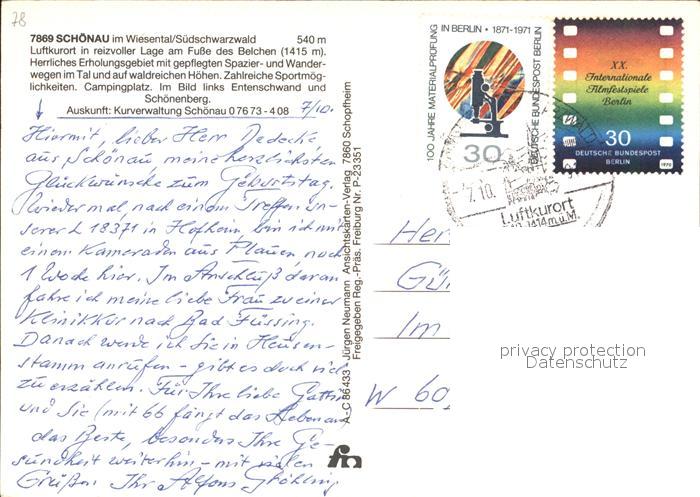 78
7869 SCHÖNAU im Wiesental/Südschwarzwald 540 m
Luftkurort in reizvoller Lage am Fuße des Belchen (1415 m).
Herrliches Erholungsgebiet mit gepflegten Spazier- und Wander-
wegen im Tal und auf waldreichen Höhen. Zahlreiche Sportmög-
lichkeiten. Campingplatz. Im Bild links Entenschwand und
Schönenberg.
Auskunft: Kurverwaltung Schönau 0 76 73 - 4 08
7/10.
Hiermit, lieber Herr
aus Schönau meine herzlichsten
Glückwünsche zum Geburtstag.
Wieder mal, nach einem Treffen un-
serer L 18371 in Hofheim, bin ich mit
einem Kameraden aus Plauen, noch
1 Woche hier. Im Anschluß daran
fahre ich meine liebe Frau zu einer
Klinikkur nach Bad Füssing.
Danach werde ich Sie in Heusen-
stamm anrufen - gibt es doch viel
zu erzählen. Für Ihre liebe Gattin
und Sie (mit 66 fängt das Leben an
das Beste, besonders Ihre Ge-
sundheit weiterhin - mit vielen
Grüßen Ihr Alfons
A - C 86 433 - Jürgen Neumann Ansichtskarten-Verlag 7860 Schopfheim
Freigegeben Reg.-Präs. Freiburg Nr. P-23351
100 JAHRE MATERIALPRÜFUNG IN BERLIN • 1871-1971
DEUTSCHE BUNDESPOST BERLIN
30
XX.
Internationale
Filmfestspiele
Berlin
30
DEUTSCHE BUNDESPOST
BERLIN
1970
7.10.
Luftkurort
1414 m ü.M.
Her
Gü
Im
W 60
privacy protection
Datenschutz